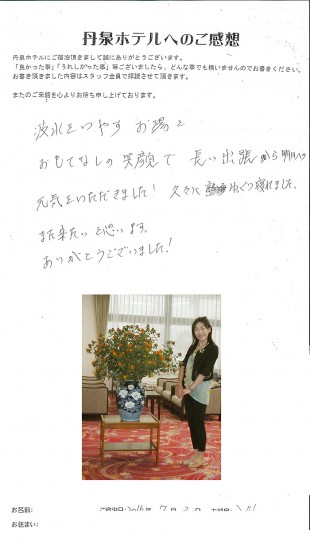 丹泉ホテルへのご感想
丹泉ホテルにご宿泊頂きまして誠にありがとうございます。
「良かった事」「うれしかった事」等ございましたら、どんな事でも構いませんのでお書きください。
お書き頂きました内容はスタッフ全員で拝読させて頂きます。
またのご来館を心よりお待ち申し上げております。
疲れをいやす お湯と
おもてなしの笑顔で 長い出張から明日への
元気をいただきました! 久々に ぐっすり寝れました。
また来たいと思います。
ありがとうございました!
お名前:
お住まい: